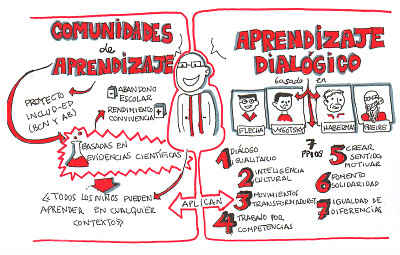 COMUNIDADES
de
APRENDIZAJE
PROYECTO
INCLUD-ED
(BCN Y AB)
ABANDONO
ESCOLAR
RENDIMIENTO
CONVIVENCIA
BASADAS EN
EVIDENCIAS CIENTÍFICAS
«TODOS LOS NIÑOS PUEDEN
APRENDER EN CUALQUIER
CONTEXTOS»
APLICAN
APRENDIZAJE
DIALÓGICO
basado en
FLECHA
VYGOTSKY
HABERMAS
FREIRE
7
PPIOS
1 DIÁLOGO
IGUALITARIO
2 INTELIGENCIA
CULTURAL
3 MOVIMIENTOS
TRANSFORMADORES
4 TRABAJO POR
COMPETENCIAS
5 CREAR
SENTIDO,
MOTIVAR
6 FOMENTO
SOLIDARIDAD
7 IGUALDAD DE
DIFERENCIAS